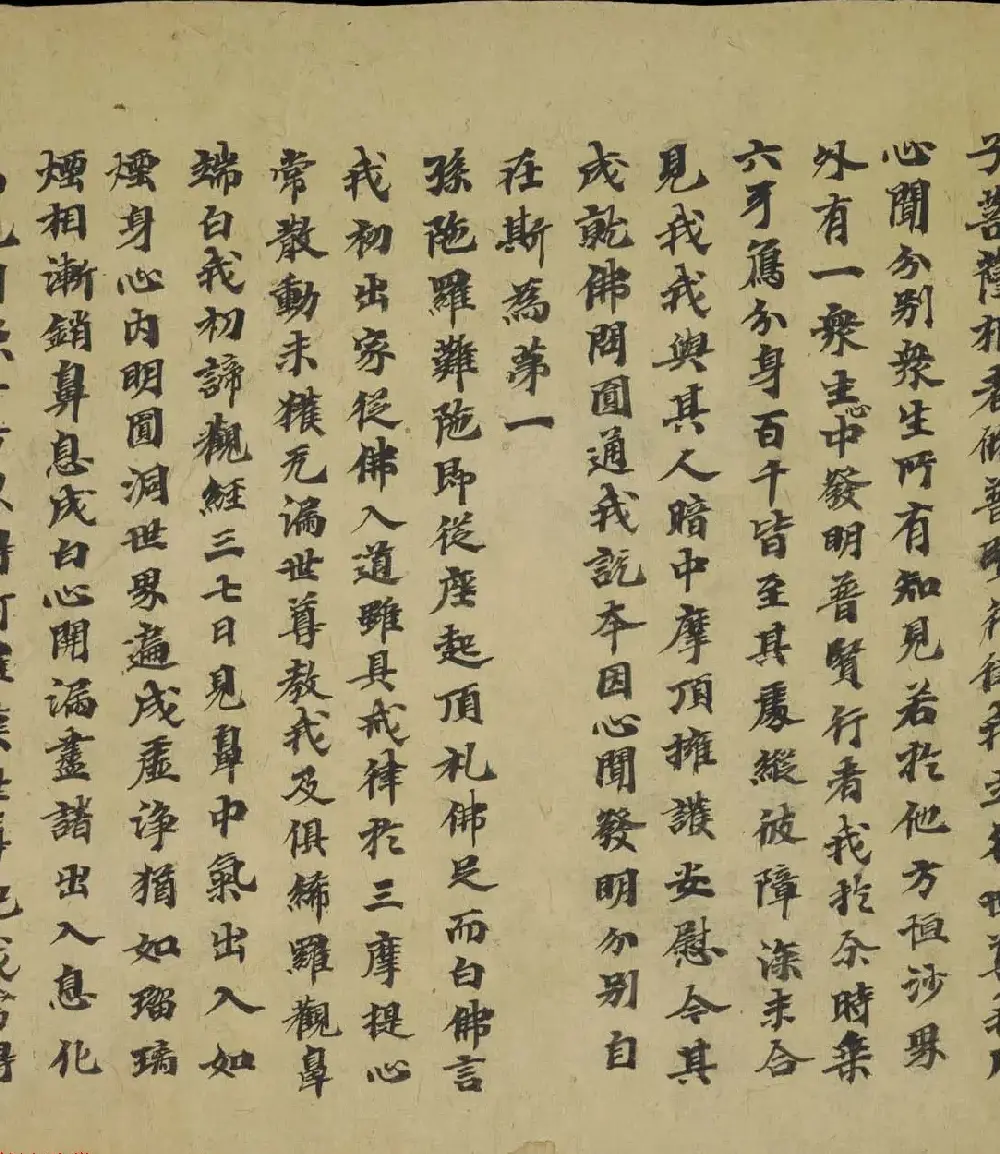 子菩薩根者
心聞分別衆生所有知見若於他方恒沙界
外有一衆生心中發明普賢行者我於尒時乗
六牙象分身百千皆至其處縱彼障深未合
見我我與其人暗中摩頂擁護安慰令其
成就佛問圓通我說本因心聞發明分別自
在斯為第一
孫陁羅難陁即從座起頂礼佛足而白佛言
我初出家從佛入道雖具戒律於三摩提心
常散動未獲无漏世尊教我及俱絺羅觀鼻
端白我初諦觀經三七日見鼻中氣出入如
煙身心内明圓洞世界遍成虛淨猶如瑠璃
煙相漸銷鼻息成白心開漏盡諸出入息化